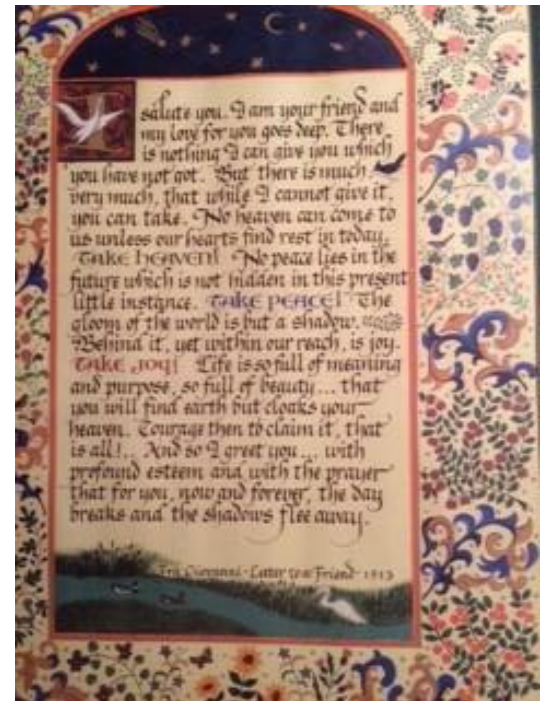 I salute you. I am your friend and
my love for you goes deep. There
is nothing I can give you which
you have not got. But there is much,
very much, that while I cannot give it,
you can take. No heaven can come to
us unless our hearts find rest in today.
TAKE HEAVEN! No peace lies in the
future which is not hidden in this present
little instance. TAKE PEACE! The
gloom of the world is but a shadow.
Behind it, yet within our reach, is joy.
TAKE JOY! Life is so full of meaning
and purpose, so full of beauty... that
you will find earth but cloaks your
heaven. Courage then to claim it, that
is all!.. And so I greet you... with
profound esteem and with the prayer
that for you, now and forever, the day
breaks and the shadows flee away.
Fra Giovanni - Letter to a Friend - 1513